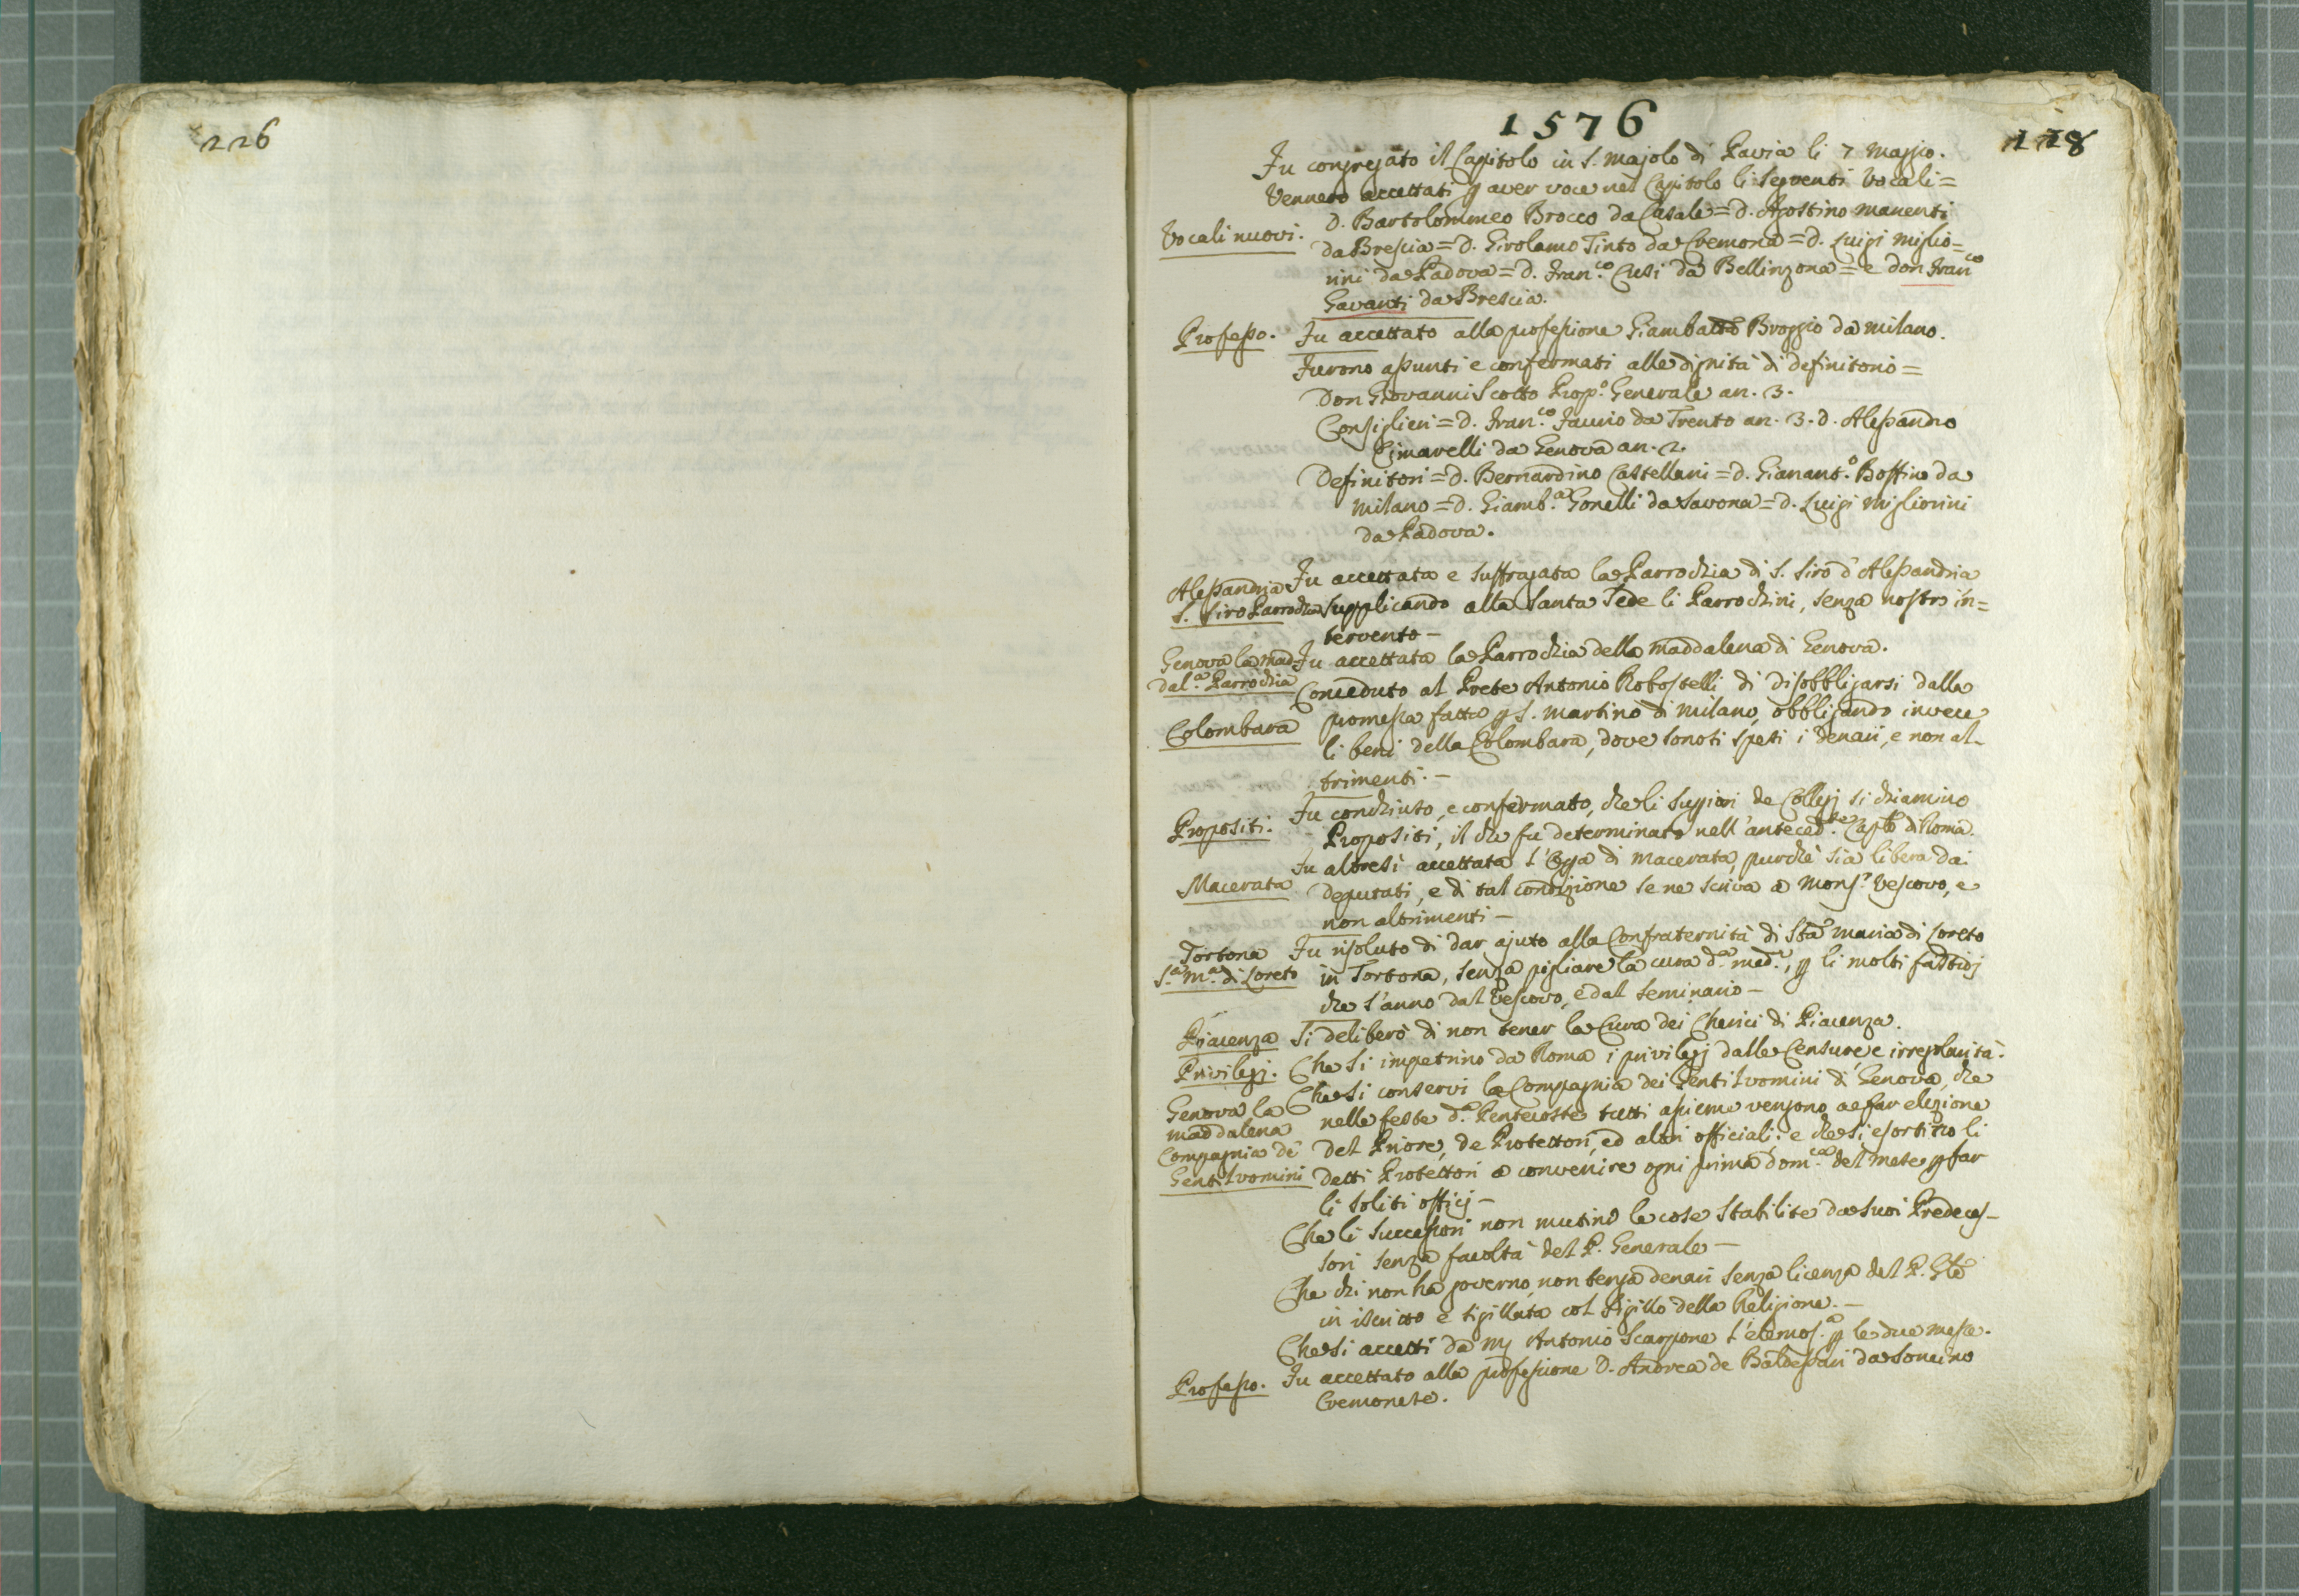 226
1576
118
Fu congregato il Capitolo in S. Majolo di Pavia li 7 Maggio.
Vennero accettati p aver voce nel Capitolo li seguenti Vocali =
Vocali nuovi.
D. Bartolommeo Brocco da Casale = D. Agostino Manenti
da Brescia = D. Girolamo Tinto da Cremona = D. Luigi Miglio=
rini da Padova = D. Fran.co Cusi da Bellinzona = e don Fran.co
Gavanti da Brescia.
Professo.
Fu accettato alla professione Giambatta Broggio da Milano.
Furono assunti e confermati alle dignità di definitorio =
Don Giovanni Scotto Prop.o Generale an. 3.
Consiglieri = D. Fran.co Faurio da Trento an. 3. D. Alessandro
Cimarelli da Genova an. 2.
Definitori = D. Bernardino Castellani = D. Gianant.o Boffino da
Milano = D. Giamb.a Gonelli da Savona = D. Luigi Migliorini
da Padova.
Alessandria
S. Siro Parrochia
Fu accettata e suffragata la Parrochia di S. Siro d'Alessandria
supplicando alla Santa Sede li Parrochini, senza nostro in=
tervento –
Genova la Mad=
dal.a Parrochia
Fu accettata la Parrochia della Maddalena di Genova.
Colombara
Conceduto al Prete Antonio Robostelli di disobbligarsi dalla
promessa fatta p S. Martino di Milano, obbligando invece
li beni della Colombara, dove sonosi spesi i denari, e non al-
trimenti. –
Propositi.
Fu conchiuso, e confermato, che li Supiori de Collegj si chiamino
Propositi, il che fu determinato nell'anteced.te Caplo di Roma.
Macerata
Fu altresì accettata l'Opa di Macerata, purchè sia libera dai
deputati, e di tal condizione se ne scriva a Mons.r Vescovo, e
non altrimenti –
Tortona
S.a M.a di Loreto
Fu risoluto di dar ajuto alla Confraternità di Sta Maria di Loreto
in Tortona, senza pigliare la cura d.a med.a, p li molti fastidj
che s'anno dal Vescovo, e dal Seminario –
Piacenza
Si deliberò di non tener la Cura dei Cherici di Piacenza.
Privilegj.
Che si impetrino da Roma i privilegj dalle Censure, e irregolarità.
Genova la
Maddalena
Compagnia de'
Gentiluomini
Che si conservi la Compagnia dei Gentiluomini di Genova, che
nelle feste d.a Pentecoste tutti assieme vengono a far elezione
del Priore, de Protettori, ed altri officiali: e che si esortino li
detti Protettori a convenire ogni prima dom.ca del mese p far
li soliti officj –
Che li Successori non mutino le cose stabilite da suoi Predeces-
sori senza facoltà del P. Generale –
Che chi non ha governo, non tenga denari senza licenza del P. Gle
in iscritto e sigillata col sigillo della Religione. –
Che si accetti da M. Antonio Scarpone l'elemos.a p le due messe.
Professo.
Fu accettato alla professione D. Andrea de Baldessari da Soncino
Cremonese.